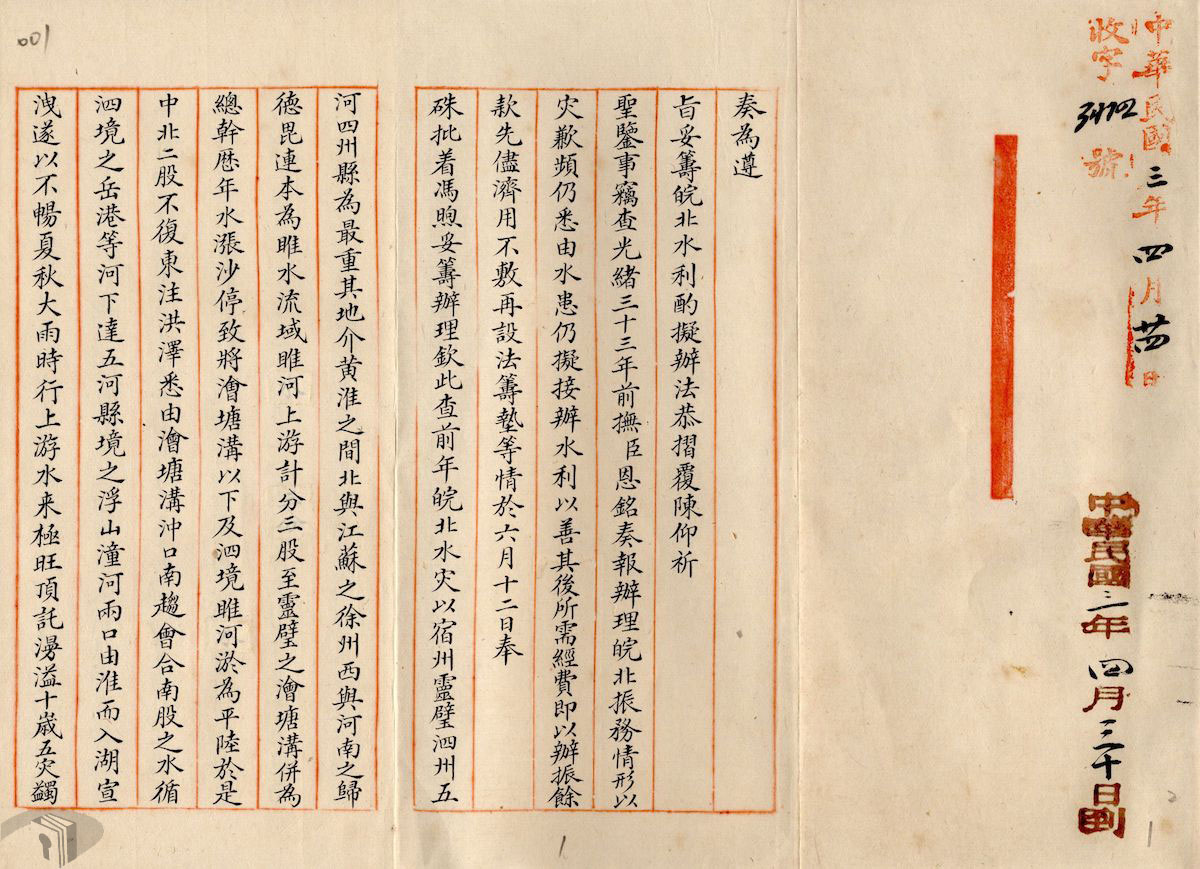 中華民國三年四月廿四日
收字3492號
中華民國三年四月三十日到
奏為遵
旨妥籌皖北水利酌擬辦法恭摺覆陳仰祈
聖鑒事竊查光緒三十三年前撫臣恩銘奏報辦理皖北振務情形以
灾歉頻仍悉由水患仍擬接辦水利以善其後所需經費即以辦振餘
款先儘濟用不敷再設法籌墊等情於六月十二日奉
硃批着馮煦妥籌辦理欽此查前年皖北水灾以宿州靈璧泗州五
河四州縣為最重其地介黃淮之間北與江蘇之徐州西與河南之歸
德毘連本為睢水流域睢河上游計分三股至靈璧之澮塘溝併為
總幹歷年水漲沙停致將澮塘溝以下及泗境睢河淤為平陸於是
中北二股不復東注洪澤悉由澮塘溝沖口南趨會合南股之水循
泗境之岳港等河下達五河縣境之浮山潼河兩口由淮而入湖宣
洩遂以不暢夏秋大雨時行上游水来極旺頂託漫溢十歲五灾蠲
001
1
1